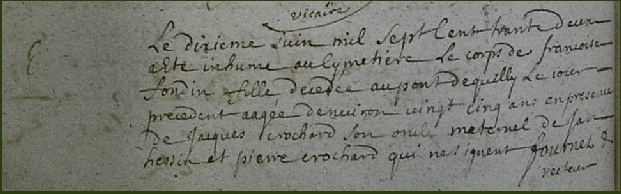 vicaire
Le dixieme Juin mil sept Cent trante deux
a Eté inhumé au Cymetiére Le corps de francoise
fondin fille decedée au pont de quilly Le jour
precedent aagée denuiron vingt cinq ans en presence
de Jacques crochard son oncle maternel de Jan
hessin et pierre crochard qui ne signent fournel
recteur